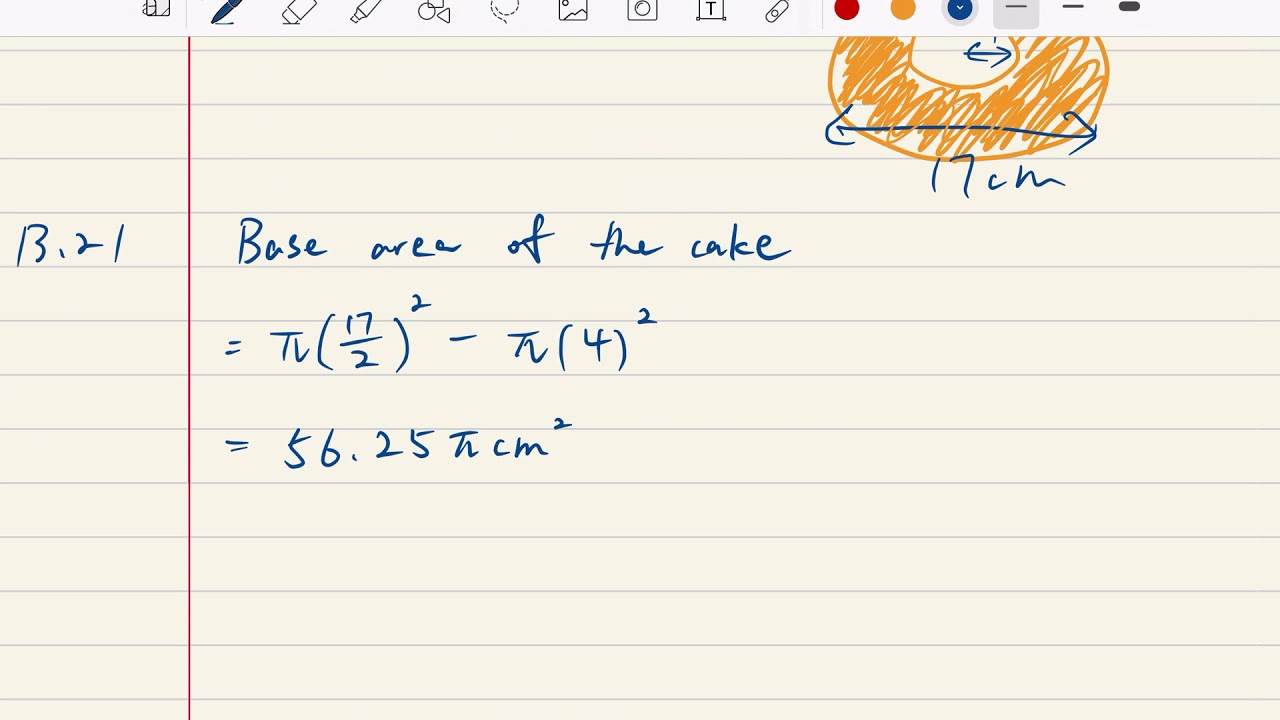 T
17cm
13.21 Base area of the cake
= π(17/2)² - π(4)²
= 56.25π cm²